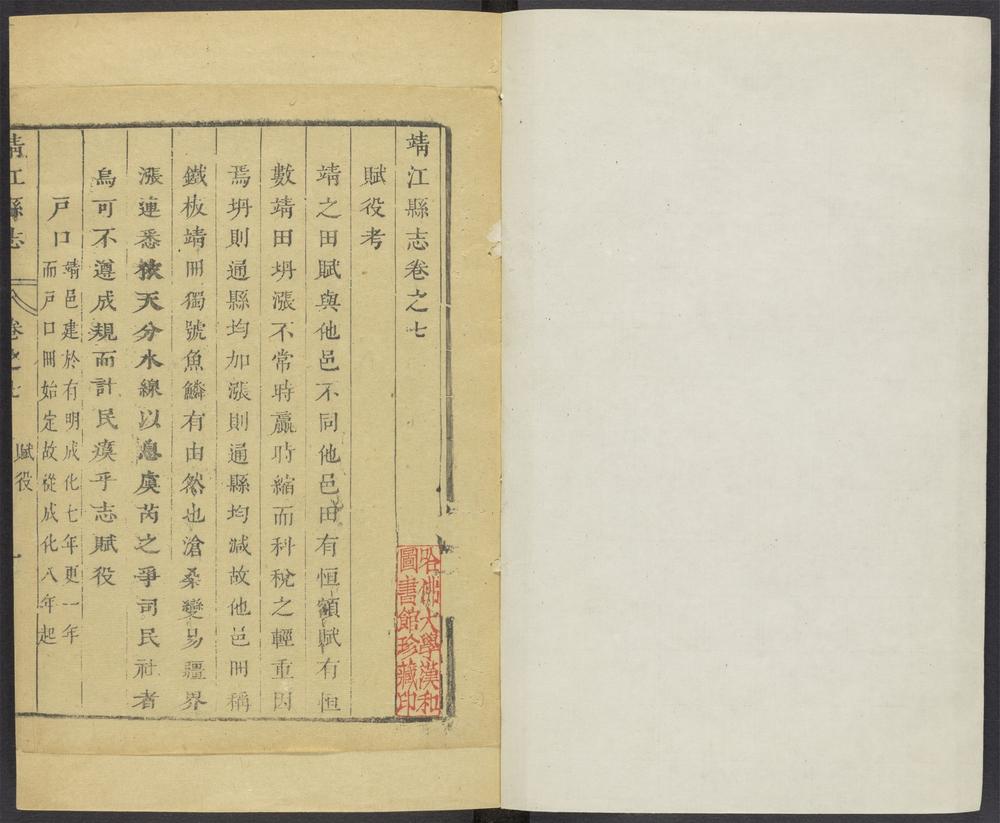 靖江縣志卷之七
賦役考
靖之田賦與他邑不同他邑田有恒額賦有恒
數靖田坍漲不常時贏時縮而科稅之輕重因
焉坍則通縣均加漲則通縣均減故他邑冊稱
鐵板靖冊獨號魚鱗有由然也滄桑變易疆界
漲連悉依天分水線以息虞芮之爭司民社者
烏可不遵成規而計民瘼乎志賦役
戶口
靖邑建於有明成化七年更一年
而戶口冊始定故從成化八年起
靖江縣志
卷之七
賦役
一
哈佛大學漢和
圖書館珍藏印